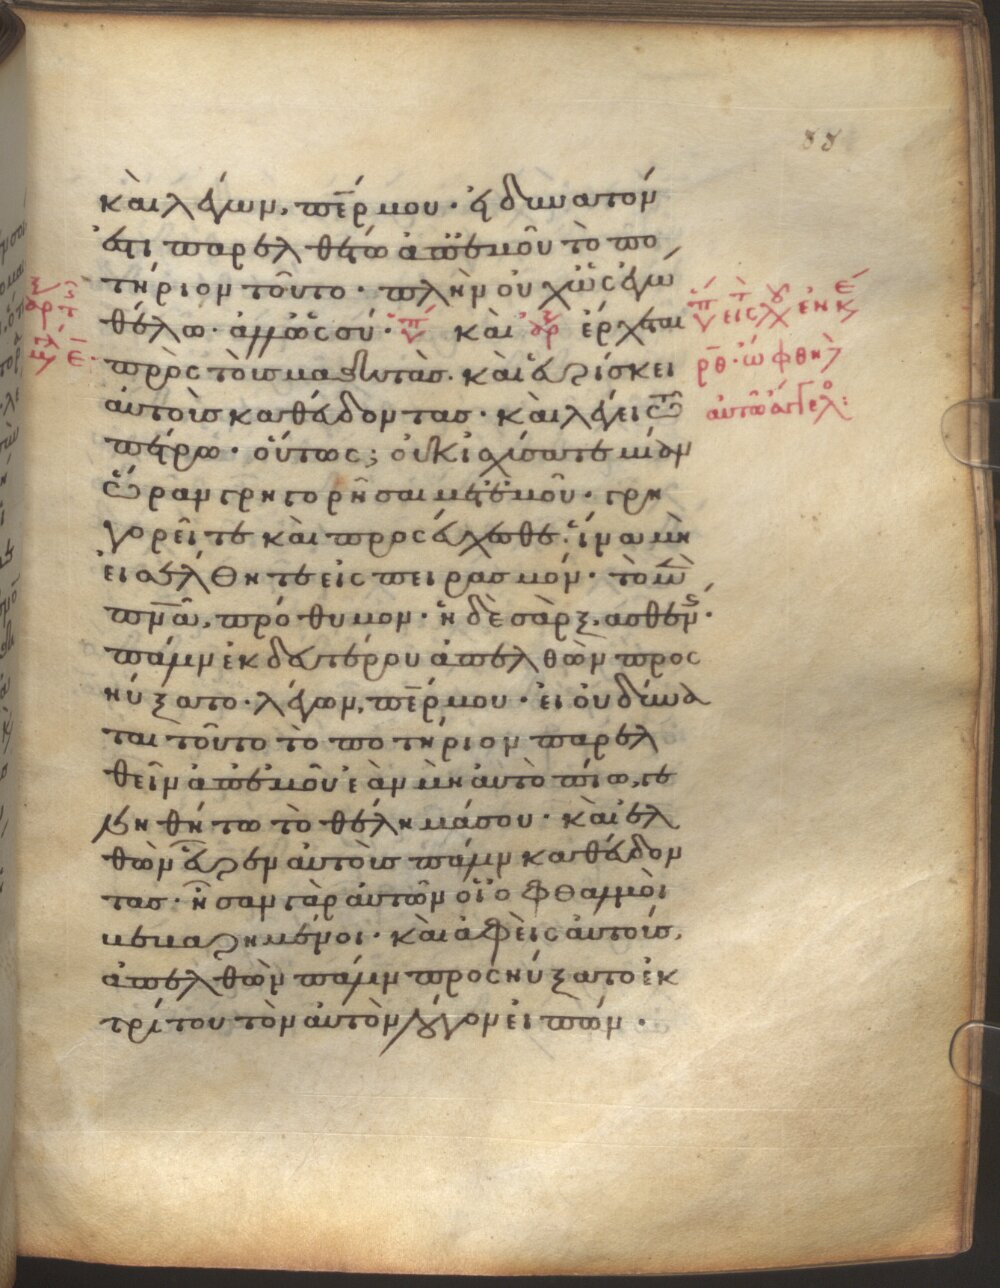 88
καὶ λέγων, π̅ε̅ρ μου· εἰ δυνατόν
ἐστι παρελθέτω ἀπ' ἐμοῦ τὸ πο
τήριον τοῦτο· πλὴν οὐχ ὡς ἐγὼ
θέλω· ἀλλ' ὡς σύ· καὶ ἔρχεται
πρὸς τοὺς μαθητὰς· καὶ εὑρίσκει
αὐτοὺς καθεύδοντας· καὶ λέγει τῶ
πέτρω· οὕτως; οὐκ ἰσχύσατε μίαν
ὥραν γρηγορῆσαι μετ' ἐμοῦ· γρη
γορεῖτε καὶ προσεύχεσθε· ἵνα μὴ
εἰσέλθητε εἰς πειρασμόν· τὸ μὲν
π̅ν̅α̅, πρόθυμον· ἡ δὲ σὰρξ, ἀσθενής·
πάλιν ἐκ δευτέρου ἀπελθὼν προς
ηύξατο· λέγων, π̅ε̅ρ μου· εἰ οὐ δύνα
ται τοῦτο τὸ ποτήριον παρελ
θεῖν ἀπ' ἐμοῦ ἐὰν μὴ αὐτὸ πίω, γε
νηθήτω τὸ θέλημά σου· καὶ ἐλ
θὼν εὗρεν αὐτοὺς πάλιν καθεύδον
τας· ἦσαν γὰρ αὐτῶν οἱ ὀφθαλμοὶ
βεβαρημένοι· καὶ ἀφεὶς αὐτούς,
ἀπελθὼν πάλιν προσηύξατο ἐκ
τρίτου τὸν αὐτὸν λόγον εἰπών·
ρ̅θ̅· ὤφθη
αὐτῶ ἄγγελ